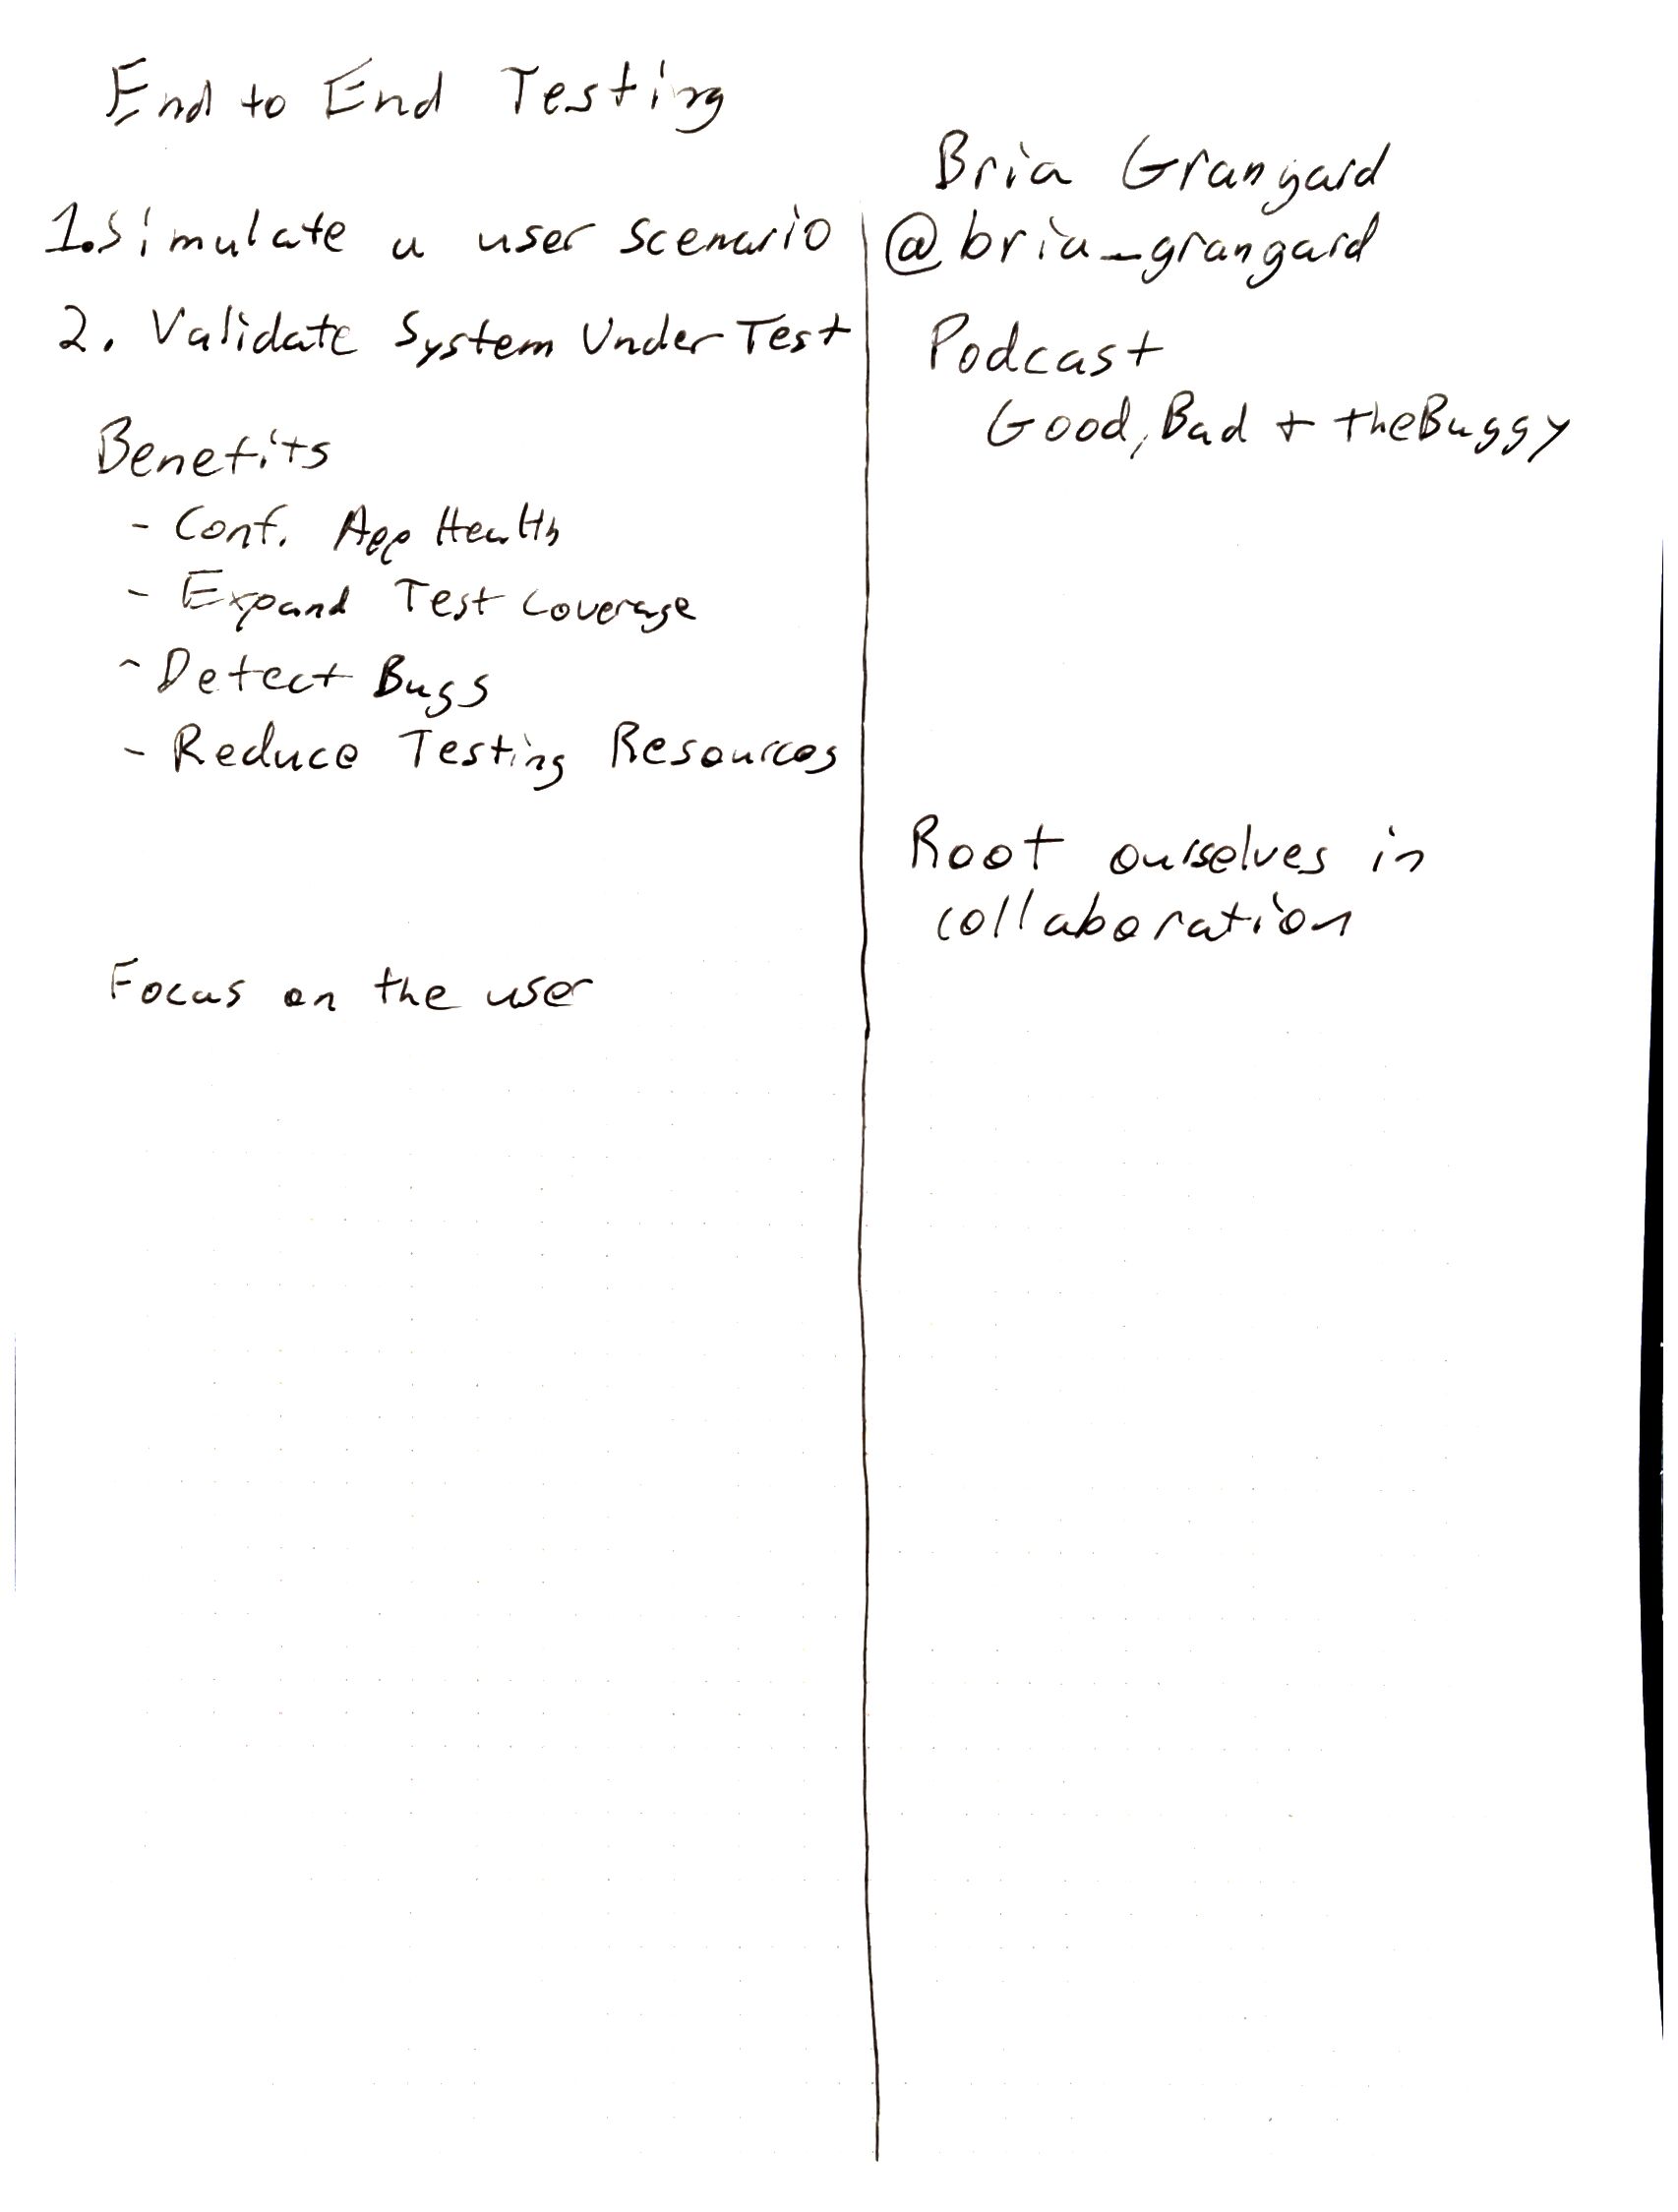 End to End Testing
1. Simulate a user scenario
2. Validate System Under Test
Benefits
- Conf. App Health
- Expand Test Coverage
- Detect Bugs
- Reduce Testing Resources
Focus on the user
Bria Grangard
@bria_grangard
Podcast
Good, Bad + the Buggy
Root ourselves in
collaboration